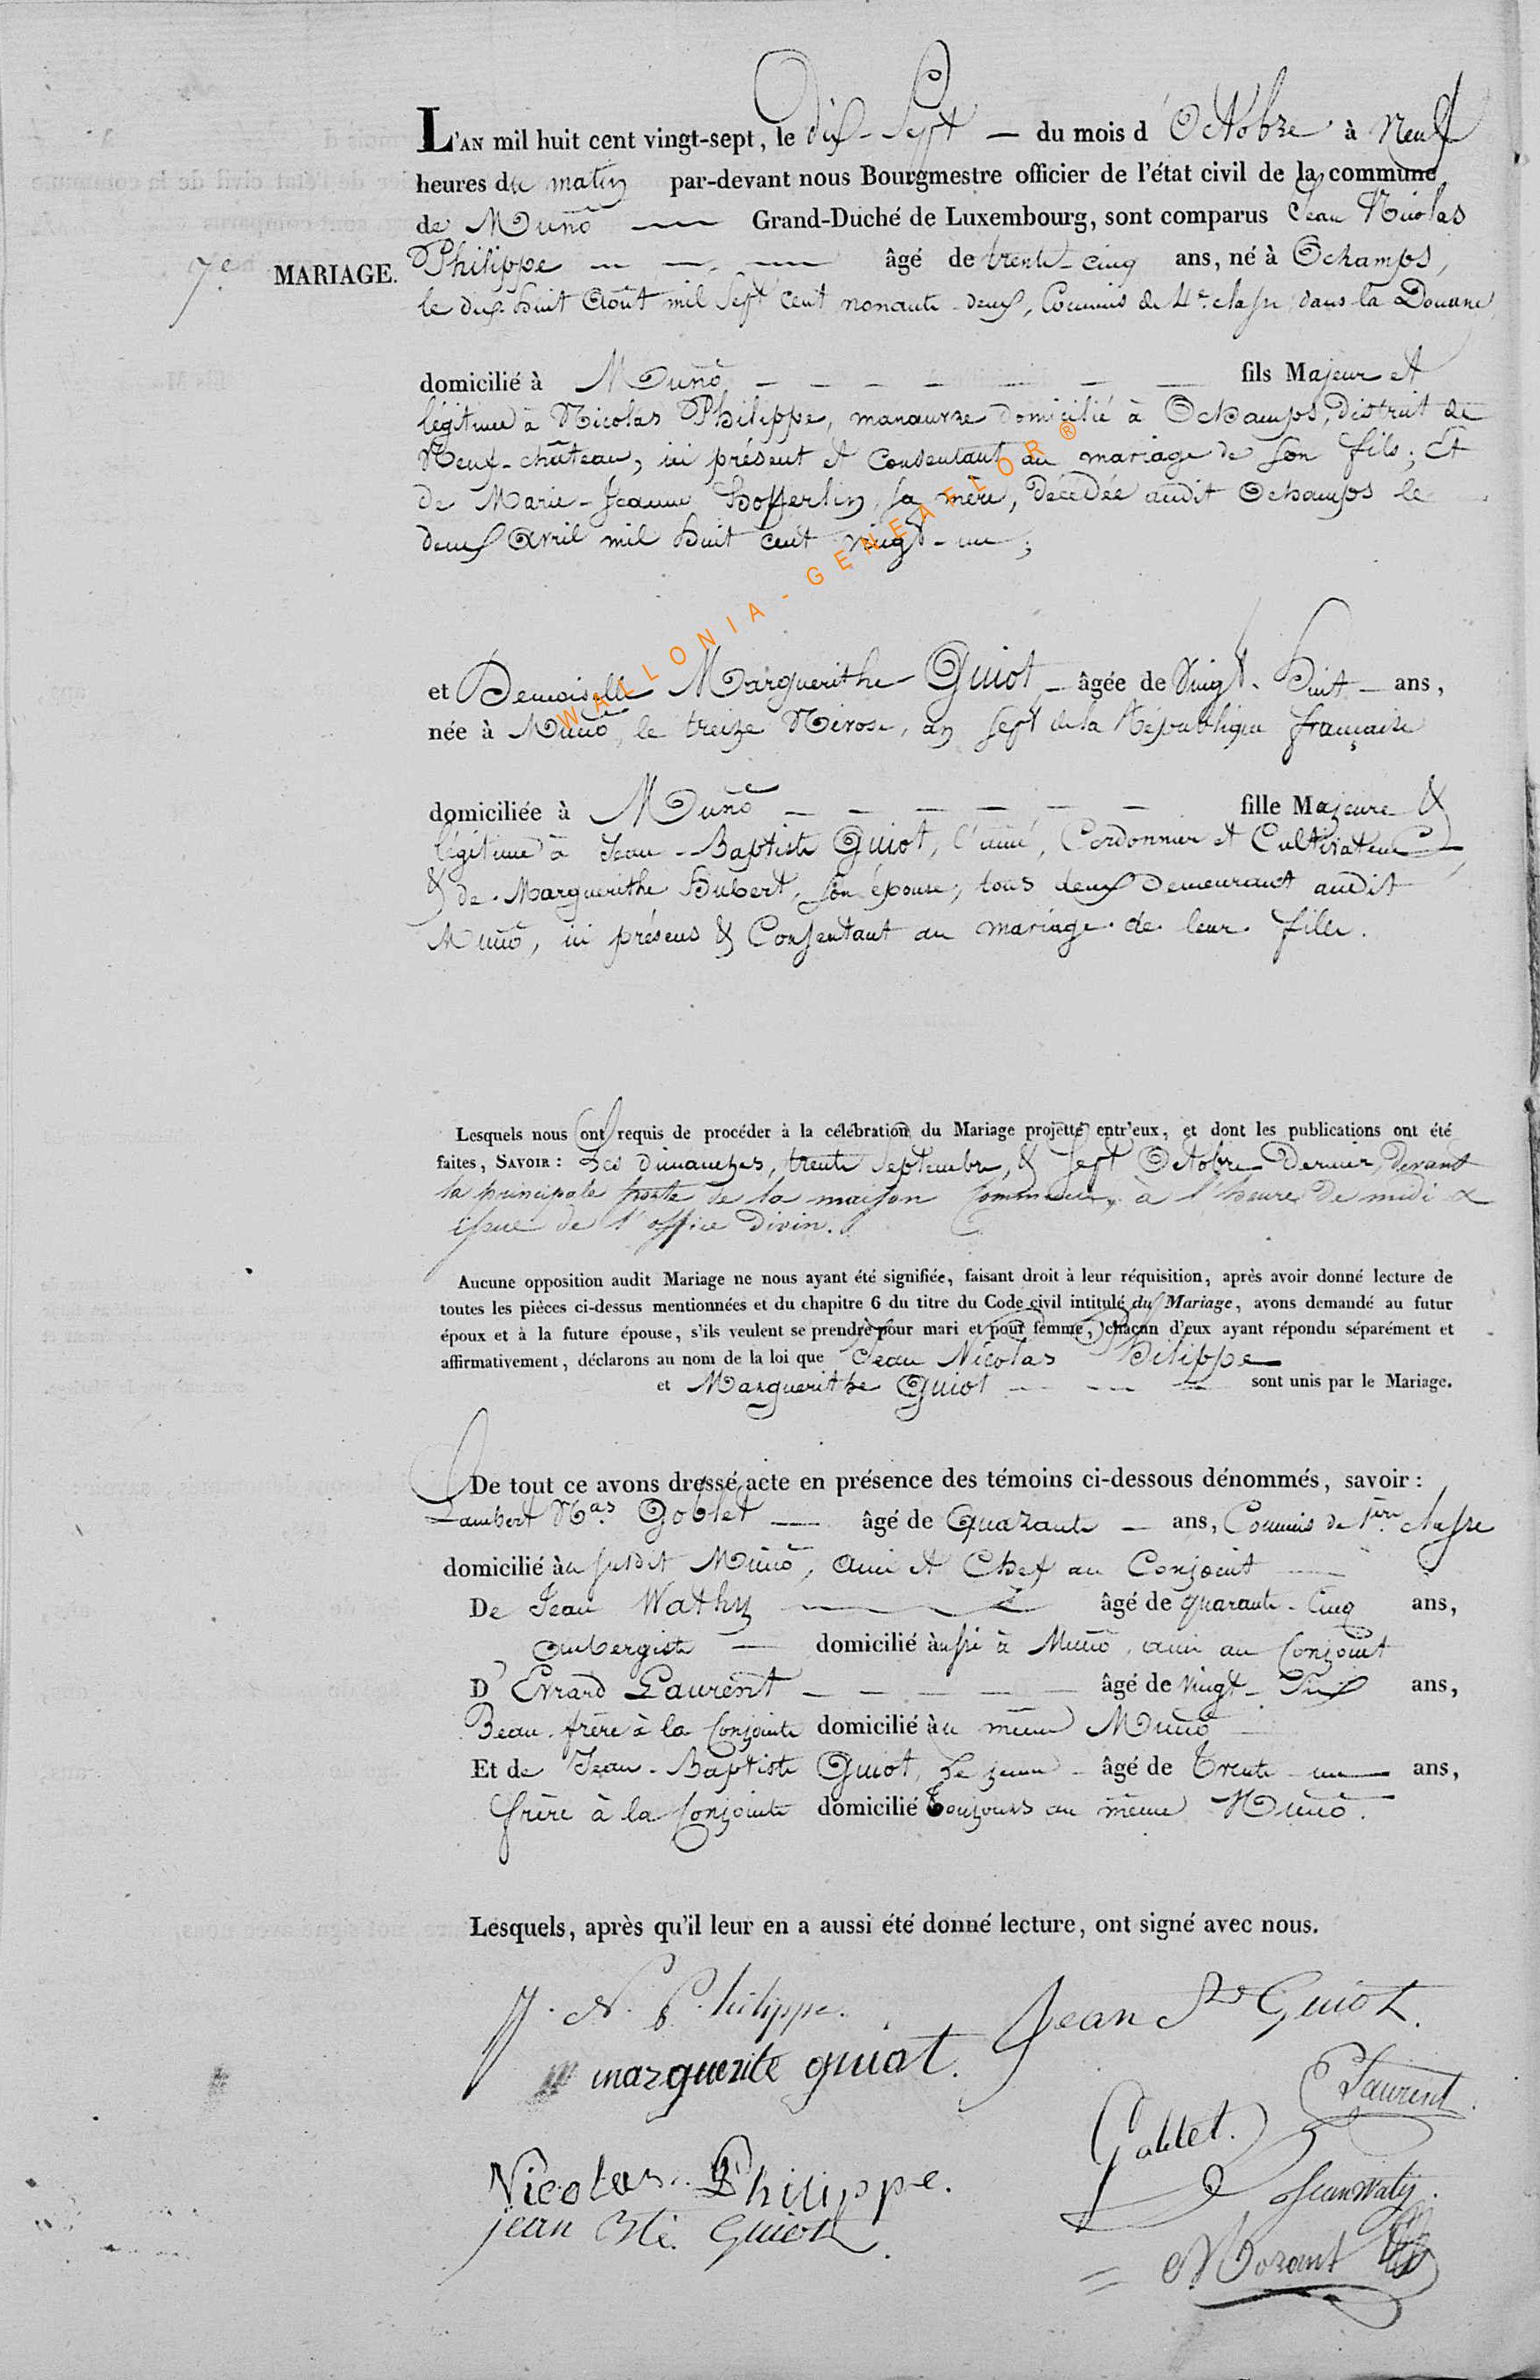 L'AN mil huit cent vingt-sept, le dix-sept — du mois d'Octobre à Neuf
heures du matin par-devant nous Bourgmestre officier de l'état civil de la commune
de Muno — Grand-Duché de Luxembourg, sont comparus Jean Nicolas
7e MARIAGE. Philippe — — — âgé de trente-cinq ans, né à Ochamps,
le dix-huit Août mil sept cent nonante-deux, Commis de 4e classe dans la Douane
domicilié à Muno — — — — — — fils Majeur et
légitime à Nicolas Philippe, manœuvre domicilié à Ochamps, district de
Neuf-château, ici présent et consentant au mariage de son fils; Et
de Marie-Jeanne Hofferlin, sa mère, décédée audit Ochamps le
deux Avril mil huit cent vingt-un;
WALLONIA-GENEAFLOR®
et Demoiselle Marguerithe Guiot — âgée de Vingt-huit — ans,
née à Muno, le treize Nivose, an sept de la République française
domiciliée à Muno — — — — — — fille Majeure &
légitime à Jean-Baptiste Guiot, l'ainé, Cordonnier et Cultivateur
& de Marguerithe Hubert, son épouse, tous deux demeurant audit
Muno, ici présens & Consentant au mariage de leur fille.
Lesquels nous ont requis de procéder à la célébration du Mariage projetté entr'eux, et dont les publications ont été
faites, SAVOIR : Les dimanches, trente Septembre, & sept Octobre dernier, devant
la principale porte de la maison Commune, à l'heure de midi &
issue de l'office divin.
Aucune opposition audit Mariage ne nous ayant été signifiée, faisant droit à leur réquisition, après avoir donné lecture de
toutes les pièces ci-dessus mentionnées et du chapitre 6 du titre du Code civil intitulé du Mariage, avons demandé au futur
époux et à la future épouse, s'ils veulent se prendre pour mari et pour femme, chacun d'eux ayant répondu séparément et
affirmativement, déclarons au nom de la loi que Jean Nicolas Philippe
et Marguerithe Guiot — — — sont unis par le Mariage.
De tout ce avons dressé acte en présence des témoins ci-dessous dénommés, savoir :
Lambert Nas Goblet — âgé de Quarante — ans, Commis de 1ère classe
domicilié au susdit Muno, ami et Chef au Conjoint —
De Jean Wathy — âgé de quarante-Cinq ans,
aubergiste — domicilié aussi à Muno, ami au Conjoint
D'Evrard Laurent — — — — — âgé de Vingt-Six ans,
Beau-frère à la Conjointe domicilié au même Muno —
Et de Jean-Baptiste Guiot, le jeune — âgé de Trente-un ans,
frère à la Conjointe domicilié toujours au même Muno.
Lesquels, après qu'il leur en a aussi été donné lecture, ont signé avec nous.
J. N. Philippe. Jean Bte Guiot.
marguerite guiot. E Laurent.
Goblet.
Nicolas Philippe. Jean Waty.
jean Bte Guiot.
Morant